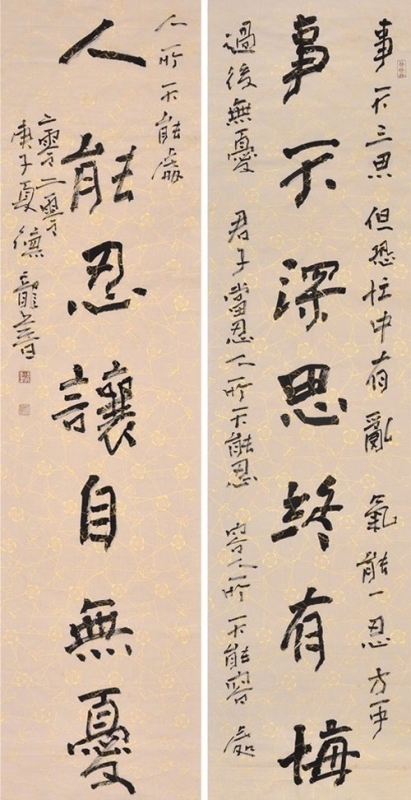 事不三思 但恐忙中有亂 氣能一忍 方
事不深思終有悔
過後無憂 君子當忍人所不能忍 容人所不能容 處
人所不能處
人能忍讓自無憂
二零二零
庚子夏德龍書